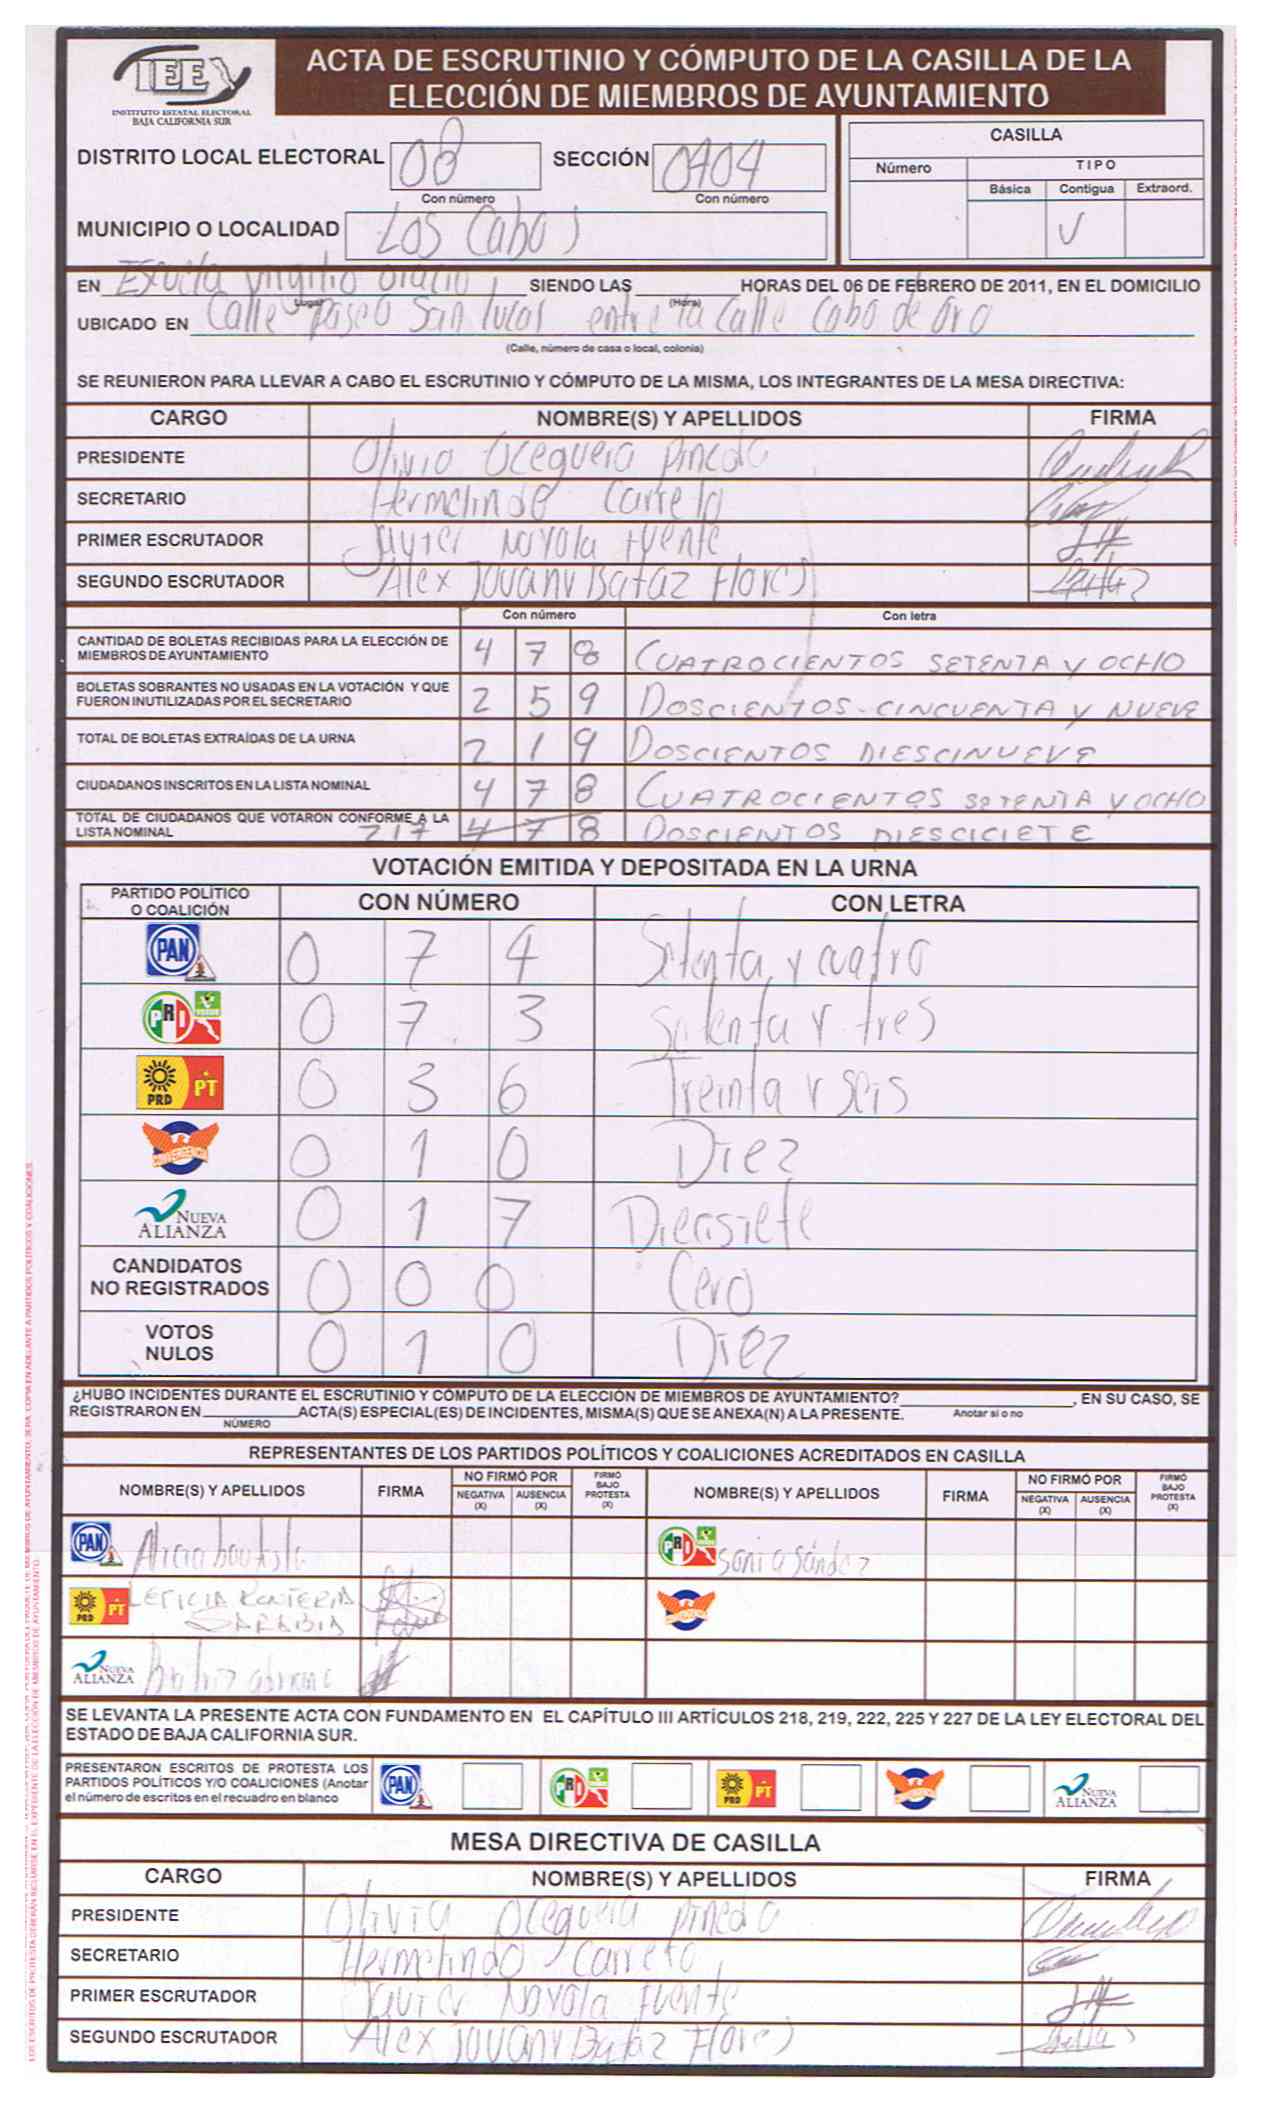 IEE
INSTITUTO ESTATAL ELECTORAL
BAJA CALIFORNIA SUR
ACTA DE ESCRUTINIO Y CÓMPUTO DE LA CASILLA DE LA
ELECCIÓN DE MIEMBROS DE AYUNTAMIENTO
DISTRITO LOCAL ELECTORAL 08 SECCIÓN 0404
Con número Con número
MUNICIPIO O LOCALIDAD Los Cabos
CASILLA
Número TIPO
Básica Contigua Extraord.
EN Escuela SIENDO LAS HORAS DEL 06 DE FEBRERO DE 2011, EN EL DOMICILIO
Lugar (Hora)
UBICADO EN Calle Paseo San lucas entre la Calle Cabo de oro
(Calle, número de casa o local, colonia)
SE REUNIERON PARA LLEVAR A CABO EL ESCRUTINIO Y CÓMPUTO DE LA MISMA, LOS INTEGRANTES DE LA MESA DIRECTIVA:
CARGO NOMBRE(S) Y APELLIDOS FIRMA
PRESIDENTE Olivia Oceguera Pineda
SECRETARIO Hermelindo Carreto
PRIMER ESCRUTADOR Javier Noyola Fuente
SEGUNDO ESCRUTADOR Alex Jovany Bataz Flores
Con número Con letra
CANTIDAD DE BOLETAS RECIBIDAS PARA LA ELECCIÓN DE
MIEMBROS DE AYUNTAMIENTO 4 7 8 CUATROCIENTOS SETENTA Y OCHO
BOLETAS SOBRANTES NO USADAS EN LA VOTACIÓN Y QUE
FUERON INUTILIZADAS POR EL SECRETARIO 2 5 9 DOSCIENTOS CINCUENTA Y NUEVE
TOTAL DE BOLETAS EXTRAÍDAS DE LA URNA 2 1 9 DOSCIENTOS DIESCINUEVE
CIUDADANOS INSCRITOS EN LA LISTA NOMINAL 4 7 8 CUATROCIENTOS SETENTA Y OCHO
TOTAL DE CIUDADANOS QUE VOTARON CONFORME A LA
LISTA NOMINAL 217 4 7 8 DOSCIENTOS DIESCICIETE
VOTACIÓN EMITIDA Y DEPOSITADA EN LA URNA
PARTIDO POLÍTICO
O COALICIÓN CON NÚMERO CON LETRA
PAN 0 7 4 Setenta y cuatro
PRI 0 7 3 Setenta y tres
PRD PT 0 3 6 Treinta y seis
CONVERGENCIA 0 1 0 Diez
NUEVA ALIANZA 0 1 7 Diecisiete
CANDIDATOS
NO REGISTRADOS 0 0 0 Cero
VOTOS
NULOS 0 1 0 Diez
¿HUBO INCIDENTES DURANTE EL ESCRUTINIO Y CÓMPUTO DE LA ELECCIÓN DE MIEMBROS DE AYUNTAMIENTO? , EN SU CASO, SE
REGISTRARON EN ACTA(S) ESPECIAL(ES) DE INCIDENTES, MISMA(S) QUE SE ANEXA(N) A LA PRESENTE. Anotar si o no
NÚMERO
REPRESENTANTES DE LOS PARTIDOS POLÍTICOS Y COALICIONES ACREDITADOS EN CASILLA
NOMBRE(S) Y APELLIDOS FIRMA NO FIRMÓ POR NEGATIVA (X) AUSENCIA (X) FIRMÓ BAJO PROTESTA (X) NOMBRE(S) Y APELLIDOS FIRMA NO FIRMÓ POR NEGATIVA (X) AUSENCIA (X) FIRMÓ BAJO PROTESTA (X)
PAN bautista PRI Sonia Sández
PRD PT LETICIA RENTERIA
SARABIA
NUEVA ALIANZA
SE LEVANTA LA PRESENTE ACTA CON FUNDAMENTO EN EL CAPÍTULO III ARTÍCULOS 218, 219, 222, 225 Y 227 DE LA LEY ELECTORAL DEL
ESTADO DE BAJA CALIFORNIA SUR.
PRESENTARON ESCRITOS DE PROTESTA LOS
PARTIDOS POLÍTICOS Y/O COALICIONES (Anotar
el número de escritos en el recuadro en blanco
PAN PRI PRD PT NUEVA ALIANZA
MESA DIRECTIVA DE CASILLA
CARGO NOMBRE(S) Y APELLIDOS FIRMA
PRESIDENTE Olivia Oceguera Pineda
SECRETARIO Hermelindo Carreto
PRIMER ESCRUTADOR Javier Noyola Fuente
SEGUNDO ESCRUTADOR Alex Jovany Bataz Flores